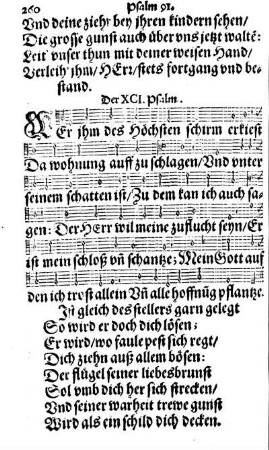 260 Psalm 91.
Und deine ziehr bey jhren kindern sehen/
Die grosse gunst auch über uns jetzt waltē:
Leit unser thun mit deiner weisen Hand/
Verleih jhm/ HErr/ stets fortgang und be-
stand.
Der XCI. Psalm.
WEr jhm des Höchsten schirm erkiest
Da wohnung auff zu schlagen/ Und unter
seinem schatten ist/ Zu dem kan ich auch sa-
gen: Der HErr wil meine zuflucht seyn/ Er
ist mein schloß uñ schantze; Mein Gott auf
den ich trost allein Uñ alle hoffnūg pflantze.
Ist gleich des stellers garn gelegt
So wird er doch dich lösen;
Er wird/ wo faule pest sich regt/
Dich ziehn auß allem bösen:
Der flügel seiner liebesbrunst
Sol umb dich her sich strecken/
Und seiner warheit trewe gunst
Wird als ein schild dich decken.